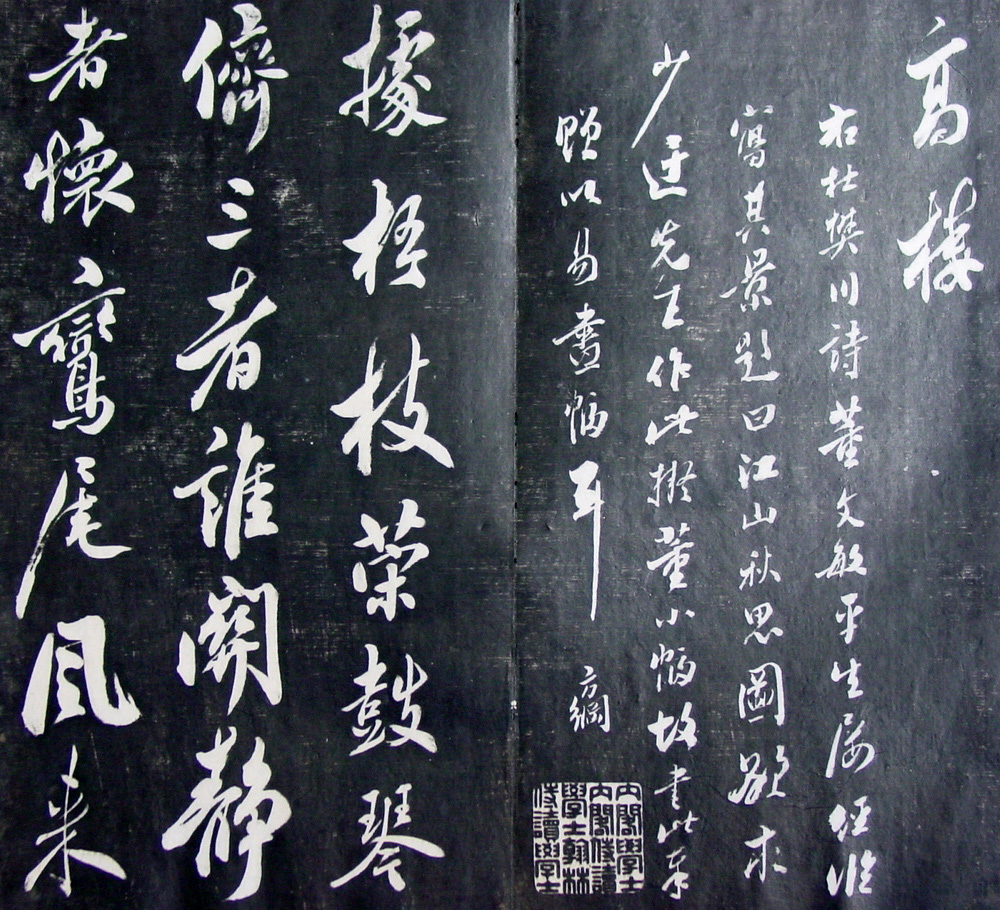 高樓
右杜樊川詩董文敏平生屢經臨
寫其景題曰江山秋思圖欲求
少迂先生作此擬董小幅故書此奉
贈以易畫幅耳
方綱
內閣學士
內閣侍讀
學士翰林
侍讀學士
據梧枝策鼓琴
儕三者誰關靜
者懷鸞尾風來